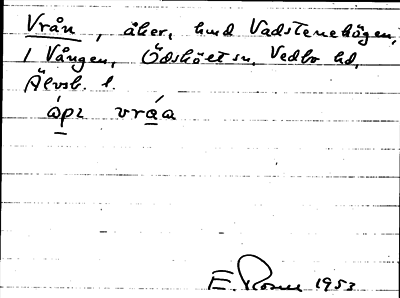 Vrån, åker, hmd Vadstenehögen,
1 Vången, Ödskölt sn, Vedbo hd,
Älvsb. l.
åpɩ vråa
E. Rosell 1953